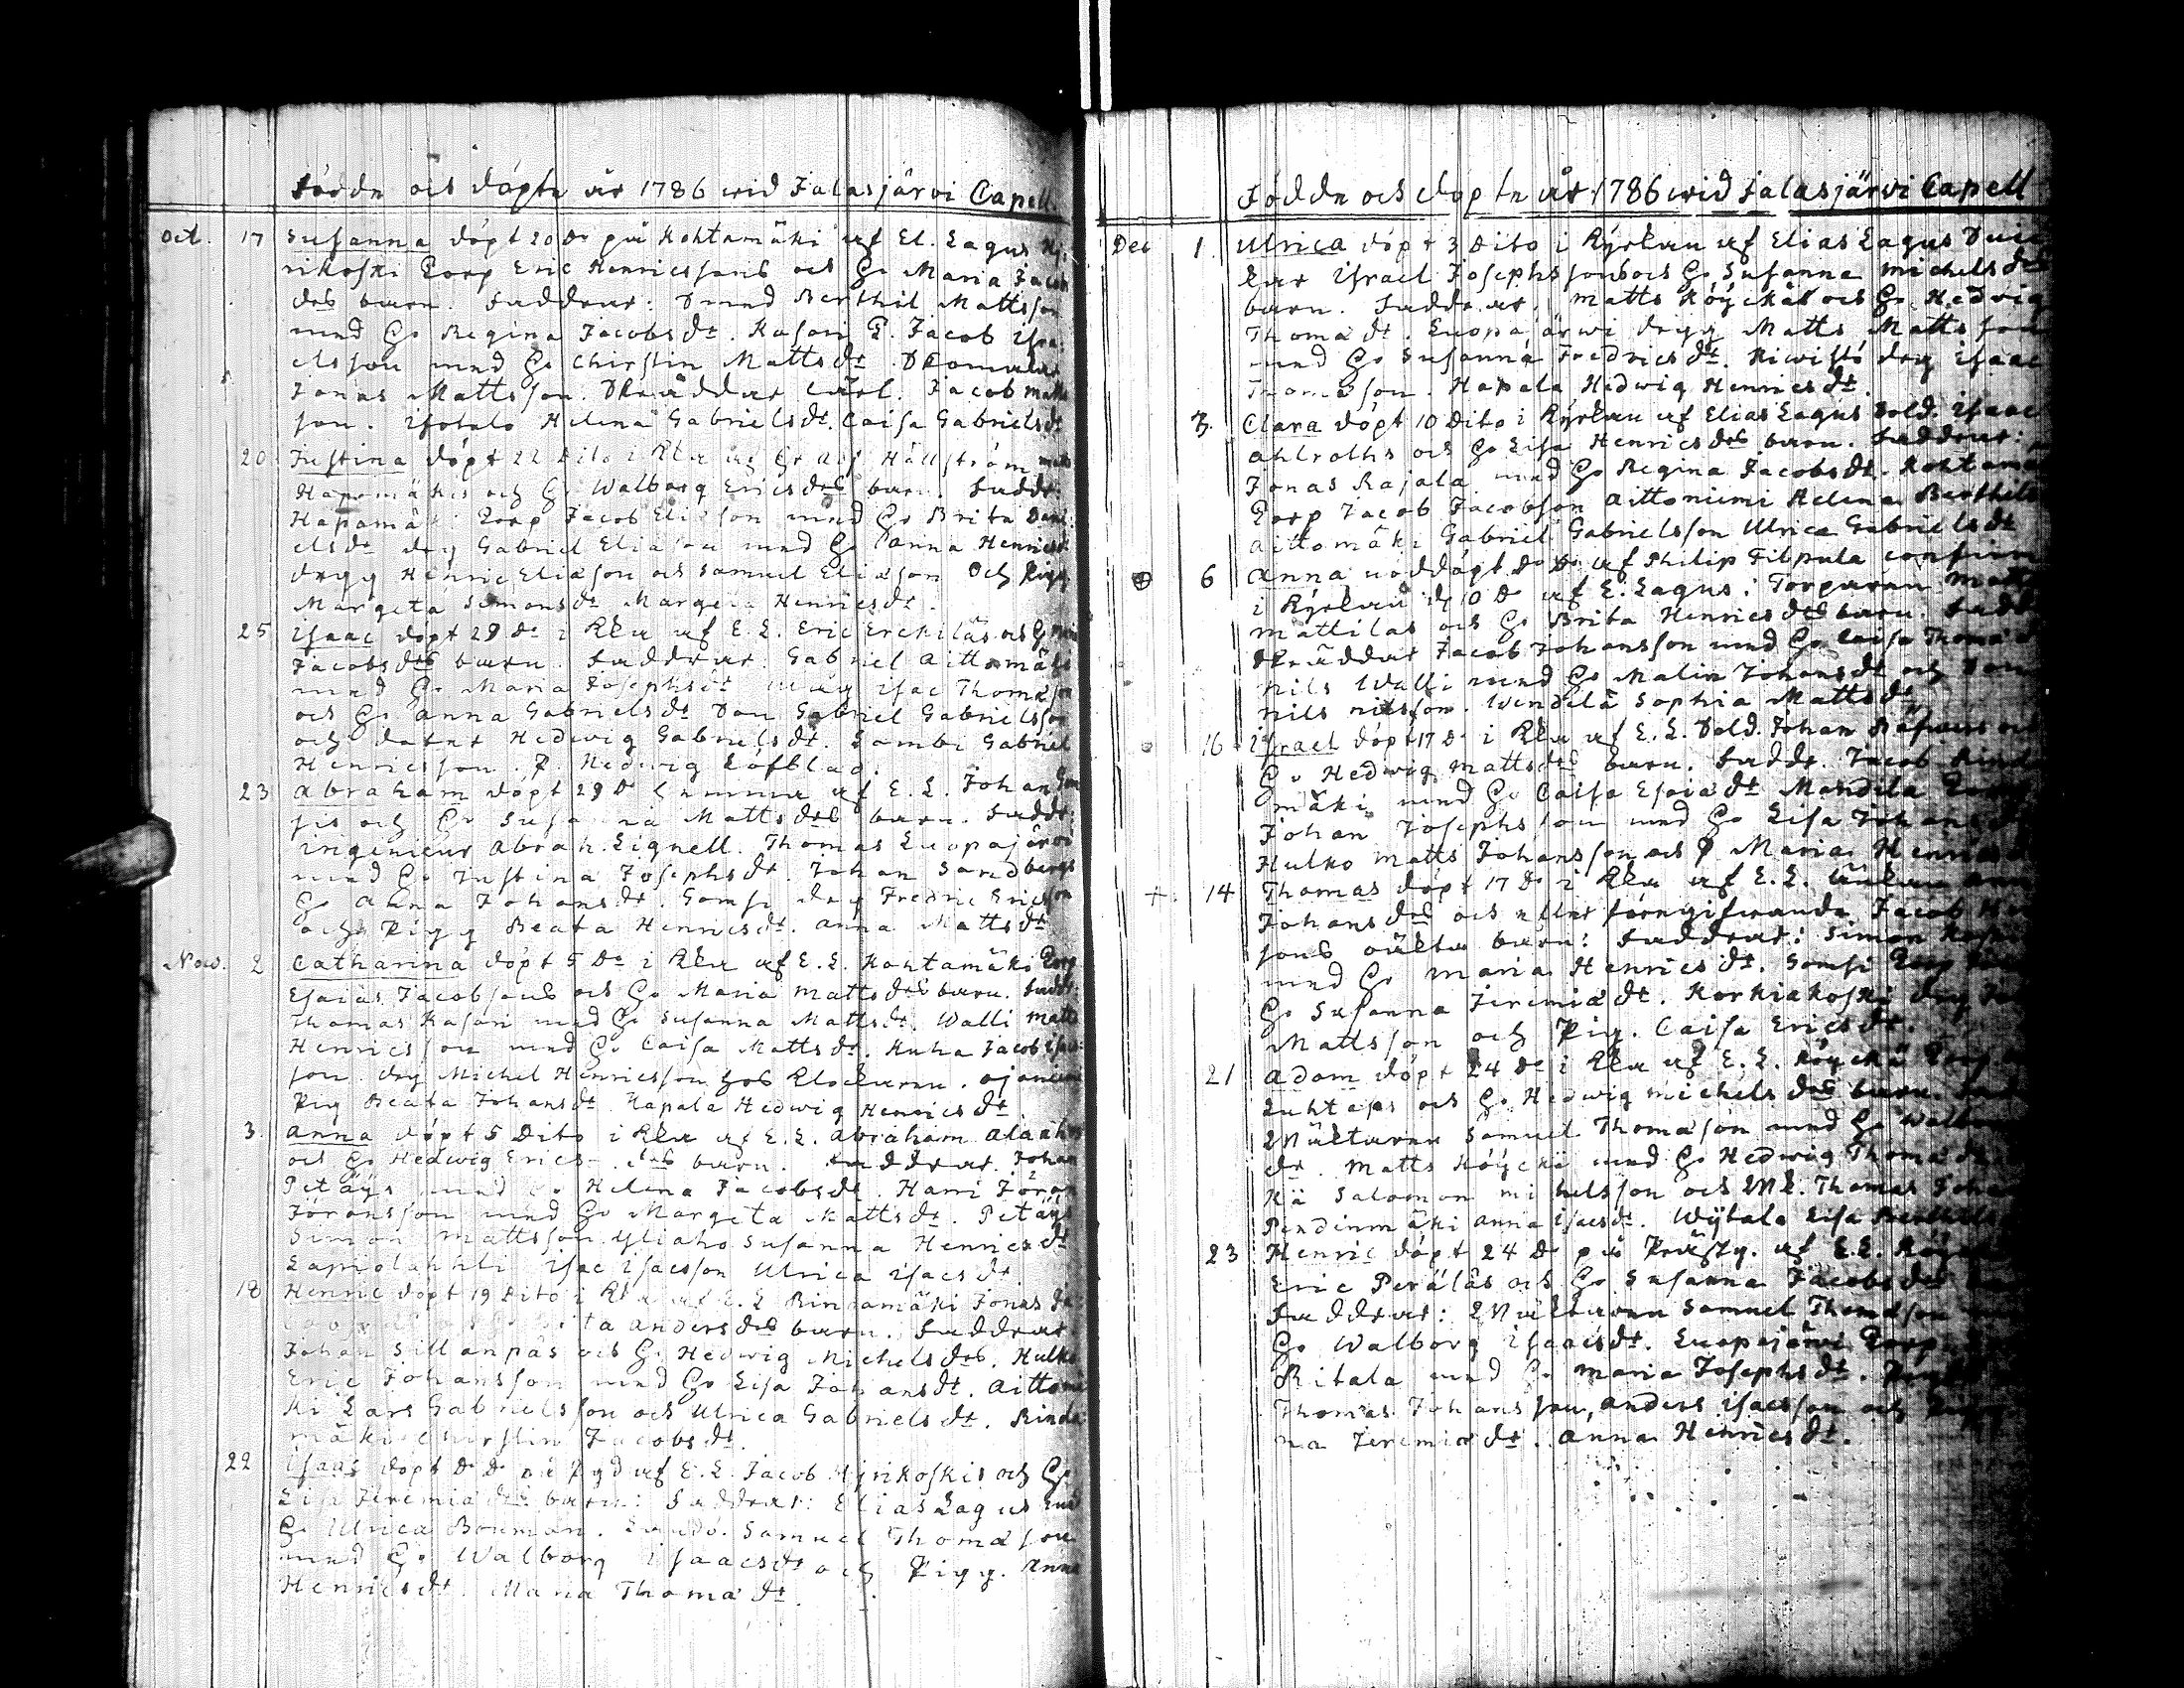 Födde och döpte år 1786 wid Jalasjärvi Capell.
Oct. 17 Susanna döpt 20 Do på Kohtamäki af El. Lagus
rikoski Torp Eric Henricssons och Ho Maria Jacob
drs barn. Faddrar: Berthil Mattsson
med Ho Regina Jacobsdr. Kasari T. Jacob Isra-
elsson med Ho Chirstin Mattsdr
Jonas Mattsson. Skräddar Lärl. Jacob Matts
son. Isotalo Helena Gabrielsdr. Caisa Gabrielsdr
20 Justina döpt 22 Dito i Kka af Hällström
Hapamäkis och Ho Walborg Ericsdrs barn. Faddr:
Hapamäki Torp Jacob Eliasson med Ho Brita Dani-
elsdr drg Gabriel Eliason med Ho Anna Henricsdr
drgg Henric Eliason och Samuel Eliason och Pigg
Margeta Simonsdr Margeta Henricsdr.
25 Isaac döpt 29 Do i Kka af E. L. Eric Erckiläs och Ho
Jacobsdrs barn. Faddrar: Gabriel Aittomäki
med Ho Maria Josephsdr Isac Thomason
och Ho Anna Gabrielsdr Son Gabriel Gabrielsson
och Hedwig Gabrielsdr. Sambi Gabriel
Henricsson. P. Hedwig Löfblad.
23 Abraham döpt 29 Do af E. L. Johan Gom
sis och Ho Susanna Mattsdrs barn. Faddr:
ingenieur Abrah. Lignell. Thomas Luopajärvi
med Ho Justina Josephsdr. Johan Sandbergs
Ho Anna Johansdr. Gomsi drg Fredric Ericsson
och Pigg Beata Henricsdr. Anna Mattsdr
Nov. 2 Catharina döpt 5 Do i Kka af E. L. Kohtamäki Torp
Esaias Jacobsons och Ho Maria Mattsdrs barn. Faddr:
Thomas Kasari med Ho Susanna Mattsdr. Walli Matts
Henricsson med Ho Caisa Mattsdr. Kuha Jacob Isacs-
son. drg Michel Henricsson hos Klockaren. Ojaniemi
Pig Beata Johansdr. Hapala Hedwig Henricsdr.
3. Anna döpt 5 Dito i Kka af E. L. Abraham Alaaho
och Ho Hedwig Erics drs barn. Faddrar. Johan
Petäys med Ho Helena Jacobsdr. Harri Jöran
Jöransson med Ho Margeta Mattsdr. Petäys
Simon Mattsson Yliaho Susanna Henricsdr
Lapiolahhti Isac Isacsson Ulrica Isacsdr.
18 Henric döpt 19 Dito i Kka af E. L. Rindamäki Jonas
Brita Andersdrs barn. Faddrar
Johan Sillanpäs och Ho Hedwig Michelsdrs. Hulko
Eric Johansson med Ho Lisa Johansdr. Aittomä
ki Lars Gabrielsson och Ulrica Gabrielsdr. Rinda
mäki Chirstin Jacobsdr.
22 Isaac döpt Do Do på Pgd af E. L. Jacob Hyrikoskis och Ho
Lisa Jeremiadrs barn: Faddrar: Elias Lagus med
Ho Ulrica Bouman. Samuel Thomason
med Ho Walborg Isaacsdr och Pigg. Anna
Henricsdr. Maria Thomadr.
Födde och döpte år 1786 wid Jalasjärvi Capell
Dec 1. Ulrica döpt 3 Dito i Kyrkan af Elias Lagus
kar Israel Josephssons och Ho Susanna Michelsdrs
barn. Faddrar. Matts Köyckät och Ho Hedvig
Thomadr. Luopajärwi drgg Matts Mattsson
med Ho Susanna Fredricsdr. Kiwistö drg Isaac
Thomasson. Hapala Hedwig Henricsdr.
7. Clara döpt 10 Dito i Kyrkan af Elias Lagus Sold. Isaac
Ahlroths och Ho Lisa Henricsdrs barn. Faddrar:
Jonas Rajala med Ho Regina Jacobsdr. Kohtamä
Torp Jacob Jacobson Aittoniemi Helena Berthils
Aittomäki Gabriel Gabrielsson Ulrica Gabrielsdr
6 Anna nöddöpt Do Do af Philip Filpula confirm
i Kyrkan d 10 Do af E. Lagus. Torparen Matts
Mattilas och Ho Brita Henricsdrs barn. Fadd
Skräddar Jacob Johansson med Ho Caisa Thomadr
Nils Walli med Ho Malin Johansdr och Son
Nils Nilsson. Wendela Sophia Mattsdr
16 Israel döpt 17 Do i Kka af E. L. Sold. Johan
Ho Hedwig Mattsdrs barn. Faddr. Jacob Rinda
mäki med Ho Caisa Esaiadr Mandila Torp
Johan Josephsson med Ho Lisa Johans
Hulko Matts Johansson och P Maria Henrics
+ 14 Thomas döpt 17 Do i Kka af E. L.
Johansdrs och efter föregifwande Jacob
sons oäkta barn: Faddrar: Simon
med Ho Maria Henricsdr. Gomsi Torp
Ho Susanna Jeremiadr. Korkiakoski drg
Mattsson och Pig. Caisa Ericsdr.
21 Adam döpt 24 Do i Kka af E. L. Köyckä Torp
Luhtaps och Ho Hedwig Michelsdrs barn.
Samuel Thomason med Ho Walborg
dr. Matts Köyckä med Ho Hedwig Thomadr
kä Salomon Michelsson och Thomas Joha
Pendinmäki Anna Isacsdr. Wytala Lisa Berthils
23 Henric döpt 24 Do på Prästg. af E. L.
Eric Peräläs och Ho Susanna Jacobsdrs
Faddrar: Samuel Thomasson
Ho Walborg Isaacsdr. Luopajärvi Torp
Ritala med Ho Maria Josephsdr.
Thomas Johansson, Anders Isacsson och
na Jeremiadr. Anna Henricsdr.